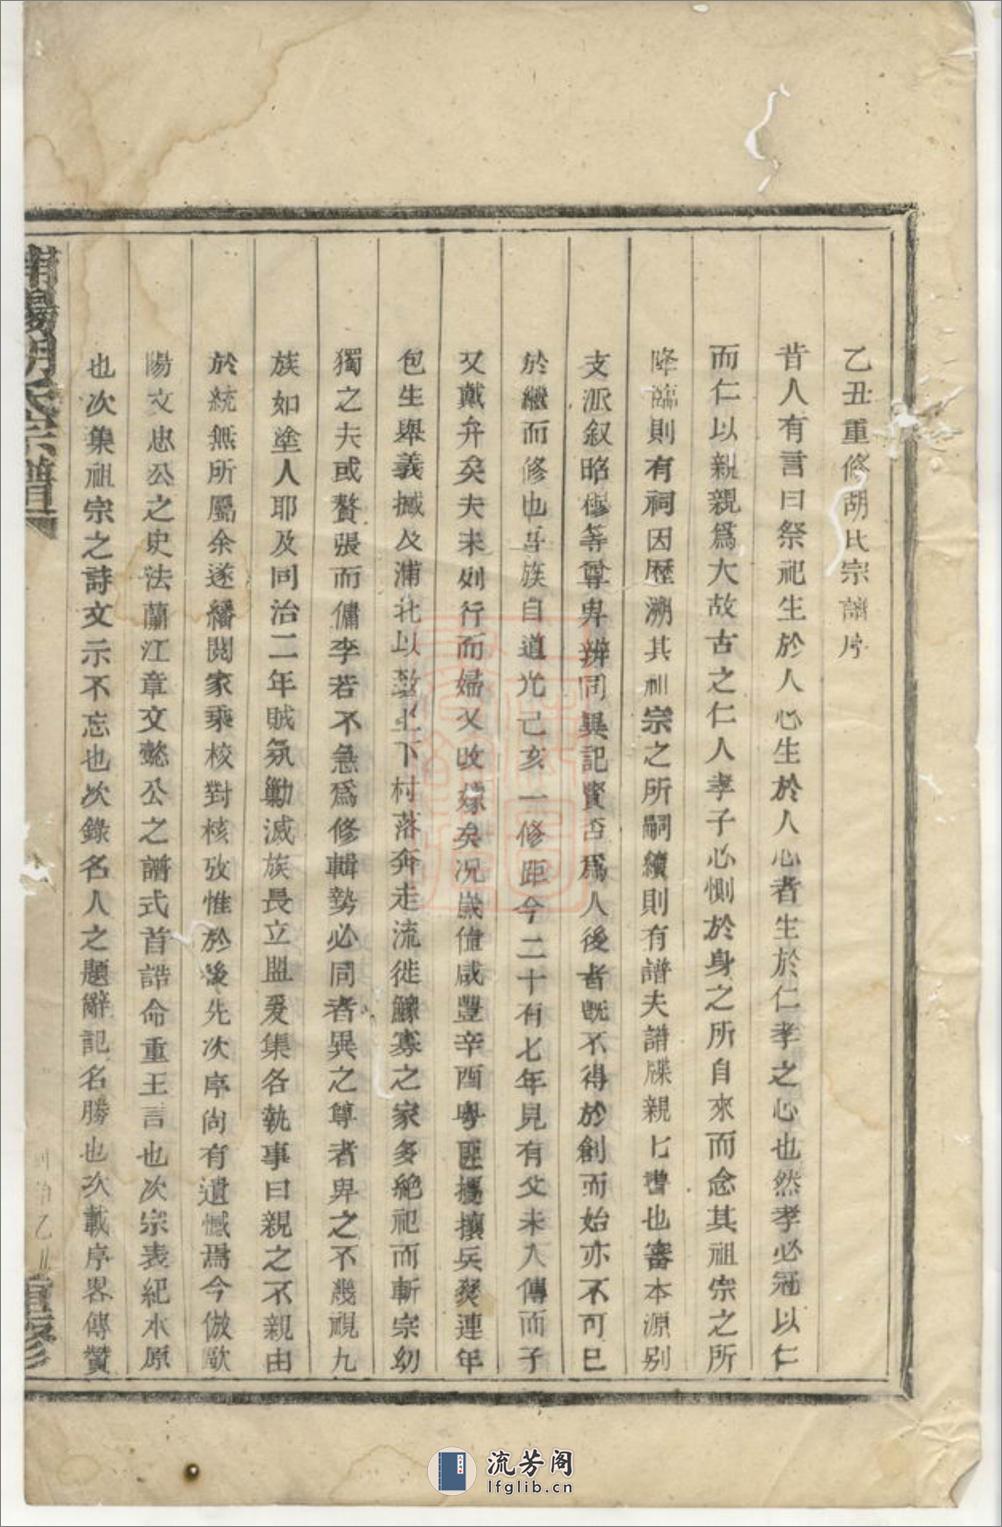 乙丑重修胡氏宗譜序
昔人有言曰祭祀生於人心生於人心者生於仁孝之心也然孝必冠以仁
而仁以親親爲大故古之仁人孝子心惻於身之所自來而念其祖宗之所
降臨則有祠因歷溯其祖宗之所嗣續則有譜夫譜牒親上書也審本源別
支派叙昭穆等尊卑辨同異記賢否爲人後者既不得於創而始亦不可已
於繼而修也吾族自道光己亥一修距今二十有七年見有父未入傳而子
又戴弁矣夫未列行而婦又改嫁矣况歲值咸豐辛酉粤匪擾攘兵燹連年
包生舉義撼及浦北以致上下村落奔走流徙鰥寡之家多絕祀而斬宗幼
獨之夫或贅張而傭李若不急爲修輯勢必同者異之尊者卑之不幾視九
族如塗人耶及同治二年賊氛勦滅族長立盟爰集各執事曰親之不親由
於統無所屬余遂繙閱家乘校對核攷惟於後先次序尚有遺憾焉今倣歐
陽文忠公之史法蘭江章文懿公之譜式首誥命重王言也次宗表紀水原
也次集祖宗之詩文示不忘也次錄名人之題辭記名勝也次載序畧傳贊
南陽胡氏宗譜
同治乙丑重修
流芳阁
lfglib.cn